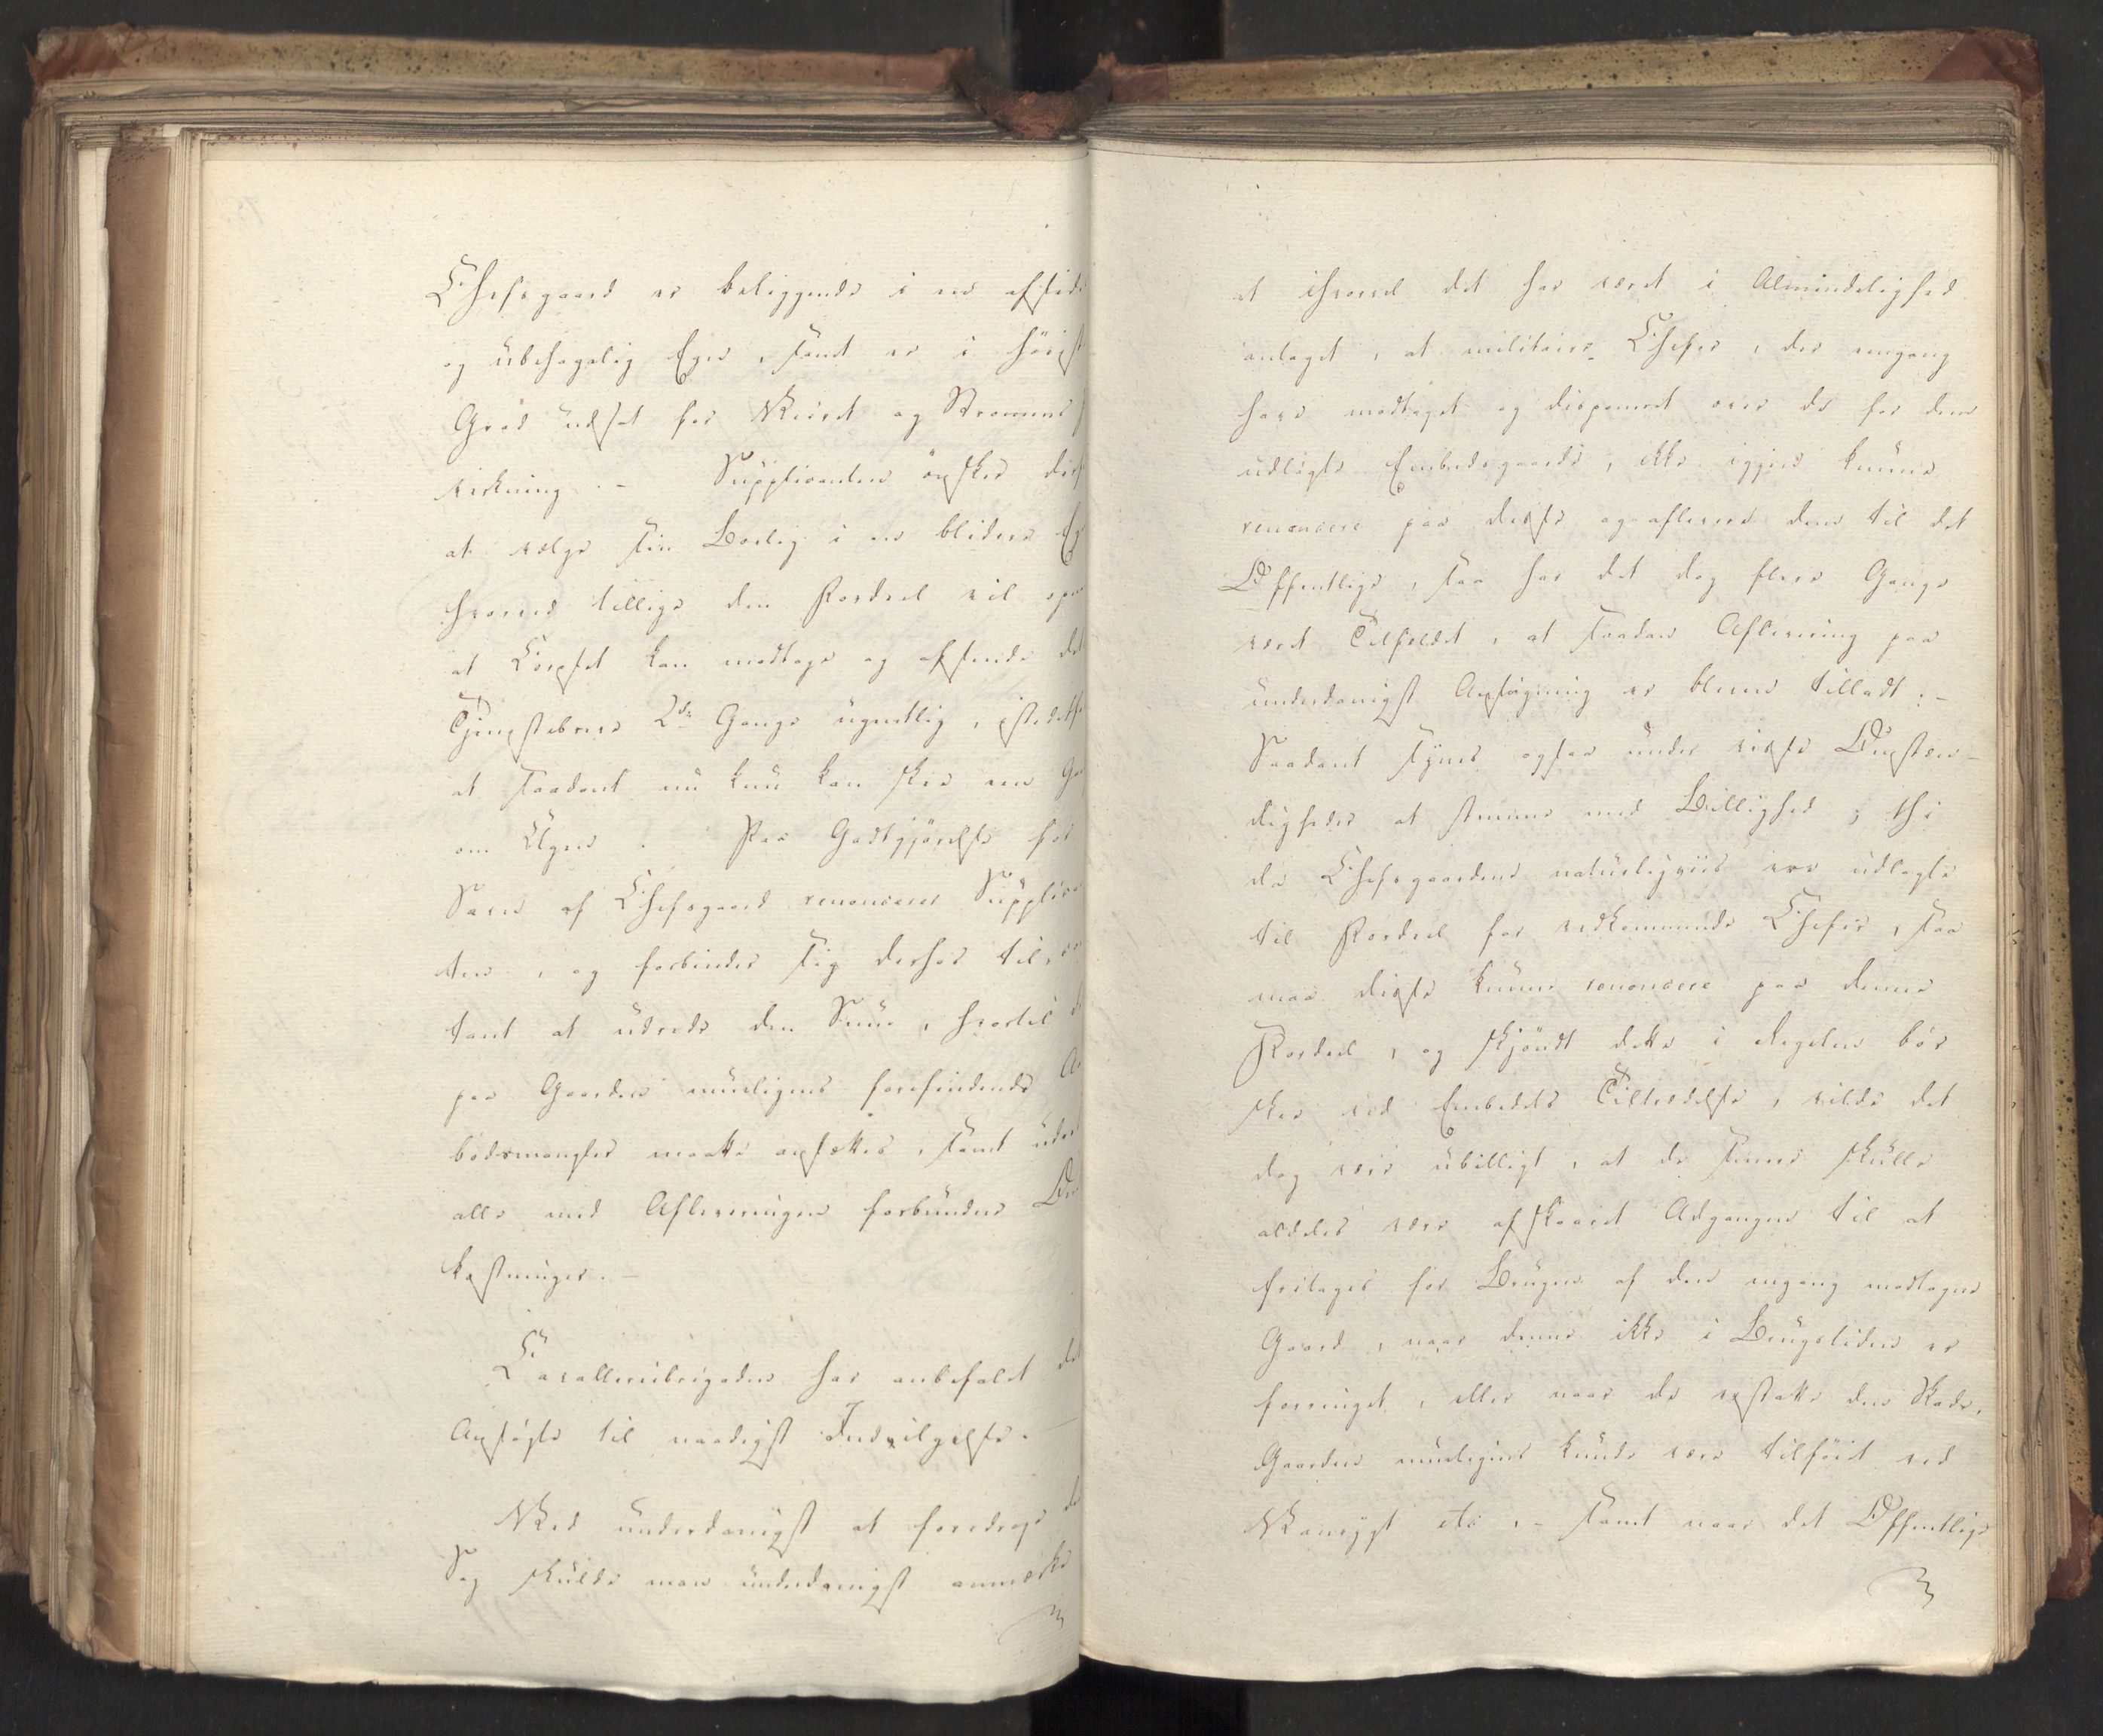 Chefsgaard er beliggende i en afsides
og ubehagelig Egn, samt er i høieste
Grad udsat for Veiret og Strømmens
virkning. – Supplicanten ønsker derfor
at vælge sin Bolig i en blidere Egn
hvorved tillige den Fordeel vil opnaaes
at Corpset kan modtage og afsende det
Tjenestebreve 2de Gange ugentlig, istedetfor
at saadant nu kun kan skee een Gang
om Ugen. Paa Godtgjørelse for
Savn af Chefsgaard renoncerer Supplican
ten, og forbinder sig derhos til,
samt at udrede den Sum, hvortil de
paa Gaarden mueligens forefindende Aa
bodsmangler maatte ansættes, samt udrede
alle med Afleveringen forbundne Om
kostninger. –
Cavalleribrigaden har anbefalet det
Ansøgte til naadigst Indvilgelse. –
Ved underdanigst at foredrage denne
Sag skulde man underdanigst anmærke
at ihvorvel det har været i Almindelighed
antaget, at militaire Chefer, der eengang
have modtaget og disponeret over de for dem
udlagte Embedsgaarde, ikke igjen kunne
renoncere paa disse og aflevere dem til det
Offentlige, saa har det dog flere Gange
været Tilfældet, at saadan Aflevering paa
underdanigst Ansøgning er bleven tilladt; –
Saadant synes ogsaa under visse Omstæn-
digheder at stemme med Billighed; thi
da Chefsgaardene naturligviis ere udlagte
til Fordeel for vedkommende Chefer, saa
maa disse kunne renoncere paa denne
Fordeel, og skjøndt dette i Regelen bør
skee ved Embedets Tiltrædelse, vilde det
dog være ubilligt, at de siden skulle
aldeles være afskaaret Adgangen til at
fritages for Brugen af den engang modtagne
Gaard, naar denne ikke i Brugstiden er
forringet, eller naar de erstatte den Skade,
Gaarden mueligens kunde være tilføiet ved
Vanrygt etc., – samt naar det Offentlige